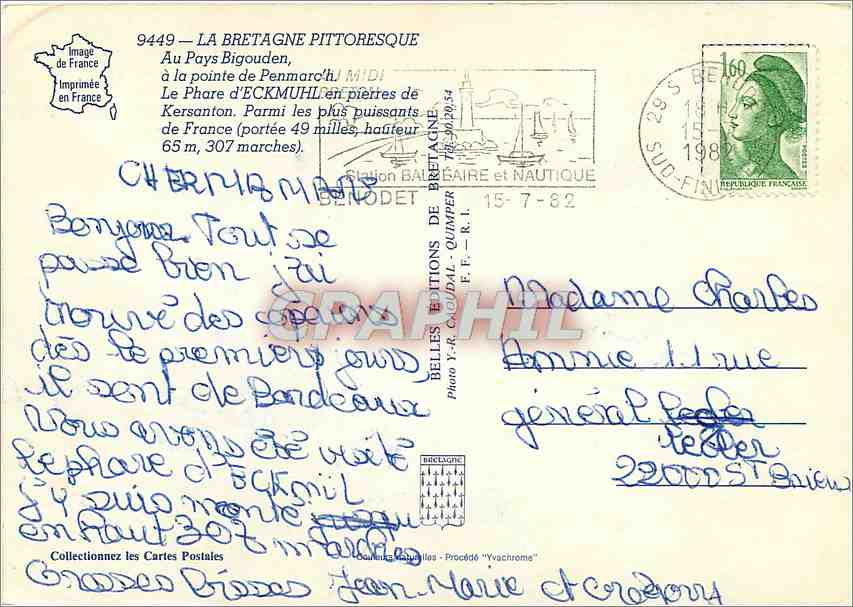 9449 — LA BRETAGNE PITTORESQUE
Au Pays Bigouden,
à la pointe de Penmarc'h.
Le Phare d'ECKMUHL en pierres de
Kersanton. Parmi les plus puissants
de France (portée 49 milles, hauteur
65 m, 307 marches).
Image
de France
Imprimée
en France
AU MIDI
Station BALNÉAIRE et NAUTIQUE
BENODET 15-7-82
29 S BENODET
15-
1982
SUD-FINIS
1,60
REPUBLIQUE FRANÇAISE
CHER MAMAN
Bonjour Tout se
passe bien j'ai
trouvé des copains
dès le premiers jours,
il sont de Bordeaux
Nous avons été visité
le phare d'ECKMIL
j'y suis monté
en haut 307 marches
Grosses Bisses Jean-Marie et
BELLES EDITIONS DE BRETAGNE
Photo Y.-R. CAOUDAL - QUIMPER Tél. 90.20.54
F. F. — R. I.
CPAPHIL
Madame Charles
Annie 11 rue
général
lecler
22000 St Brieu
BRETAGNE
Collectionnez les Cartes Postales
Couleurs naturelles - Procédé "Yvachrome"